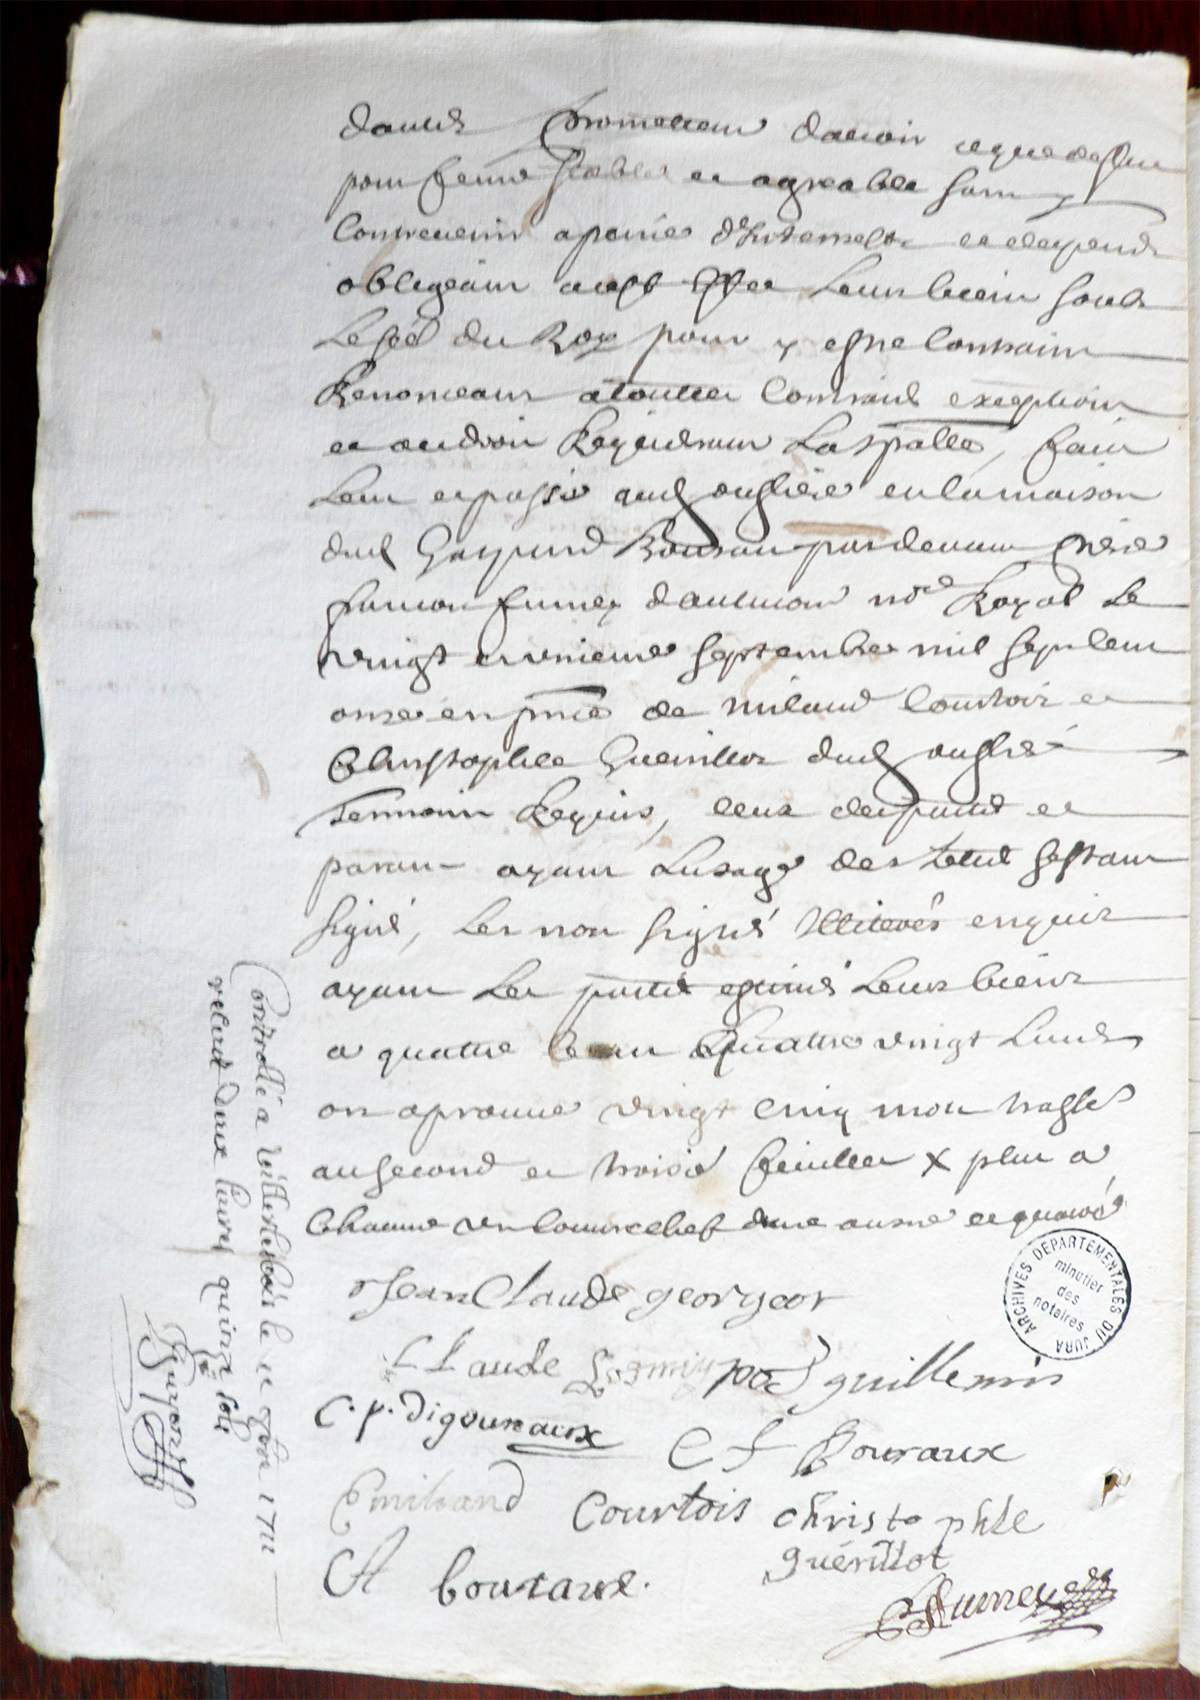 dautres promettant davoir ce que dessus
pour ferme stable et agreable sans y
contrevenir a peine d'Interestz et despends
obligeant a cest effect Leurs biens soubs
Le séel du Roy pour y estre contraint
Renonceant a touttes contraires exceptions
et au droit Requerant La spalle, fait
Leu et passé aud ougliere en la maison
dud Gaspard Bouraux pardevant
fumey daulmont no.re Royal Le
vingt unieme septembre mil sept cent
onze en pnce de miland Courtois et
Christophle Guerillot dud
Temoins Requis, ceux des parties et
parans ayant Lusage des Lettres sestant
signé, Les non signés Illiterés enquis
ayant Les parties estimés Leurs biens
a quattre cent quattre vingt Livres
on aprouve vingt cinq mots trassés
au second et troisie feuillet X plus a
en et quarré
Jean Claude georgeot
Claude guillemin
C. p. digouraux
C f Bouraux
Emiliand Courtois christophle
guérillot
CA bouraux.
fumey
Controllé a le 1711
receut deux livres quinze sols
ARCHIVES DEPARTEMENTALES DU JURA
minutier
des
notaires